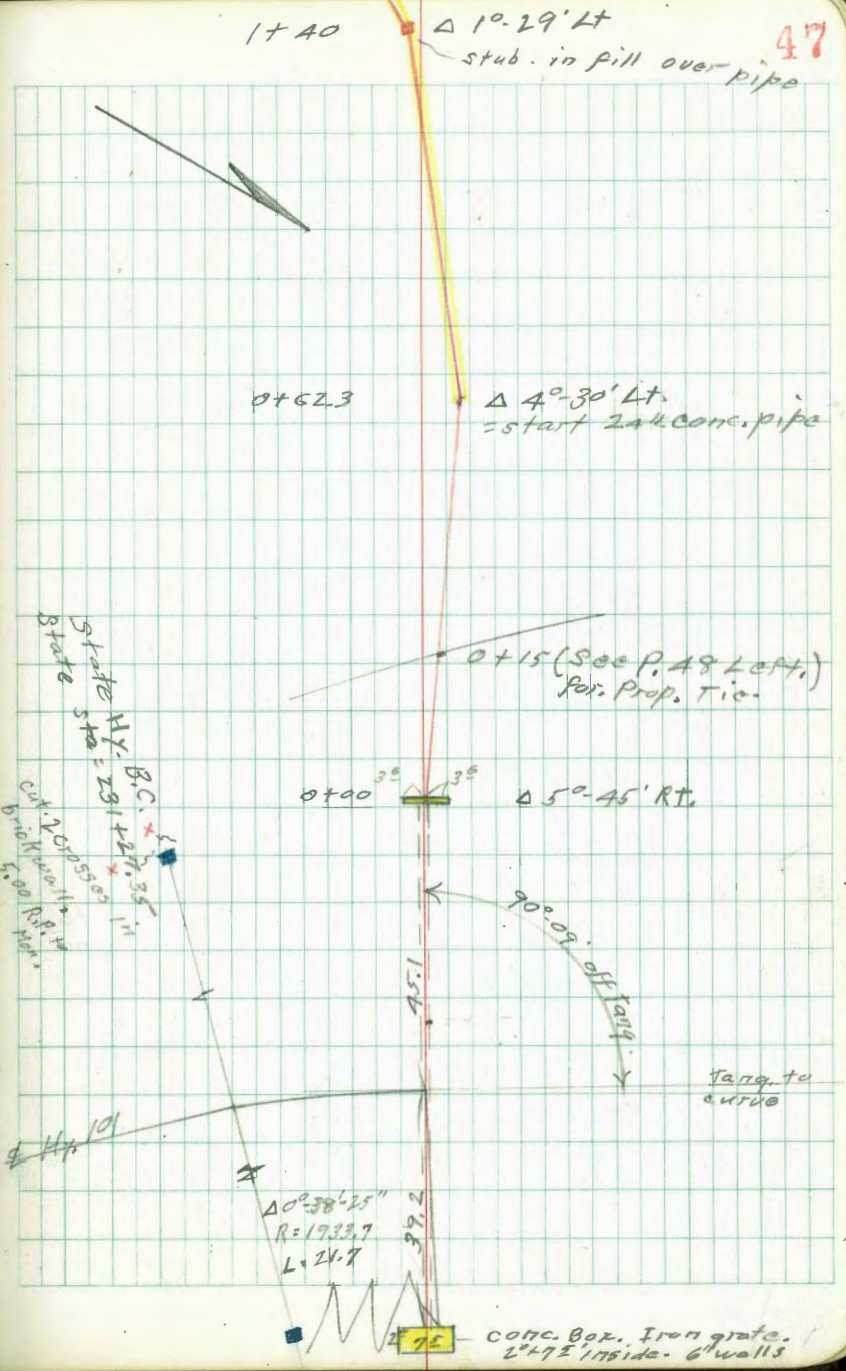 47
1+40
Δ 1°-29' Lt
stub. in fill over pipe
0+623
Δ 4°-30' Lt.
=start 24" conc. pipe
0+15 (See P. 48 Left.)
for. Prop. Tie.
State Hy. B.C.
State sta = 231+27.35
cut. 2 crosses in
brick walls
5.00 R.P. to
Mon.
0+00
3⁶
3⁶
Δ 5°-45' Rt.
90°-09' off Tang.
45.1
Tang. to
curve
Hy. 101
39.2
Δ 0°-38'-25"
R=1933.7
L=21.7
conc. Box. Iron grate.
inside. 6" walls